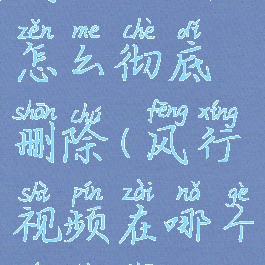 zěn me chè dǐ
怎么彻底
shān chú fēng xíng
删除(风行
shì pín zài nǎ gè
视频在哪个